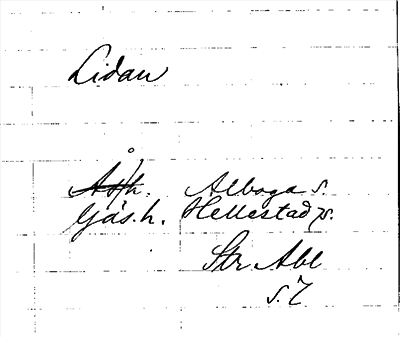 Lidan
Alboga s.
Gäs. h. Hellestad ps.
Str. Abl
s. 7